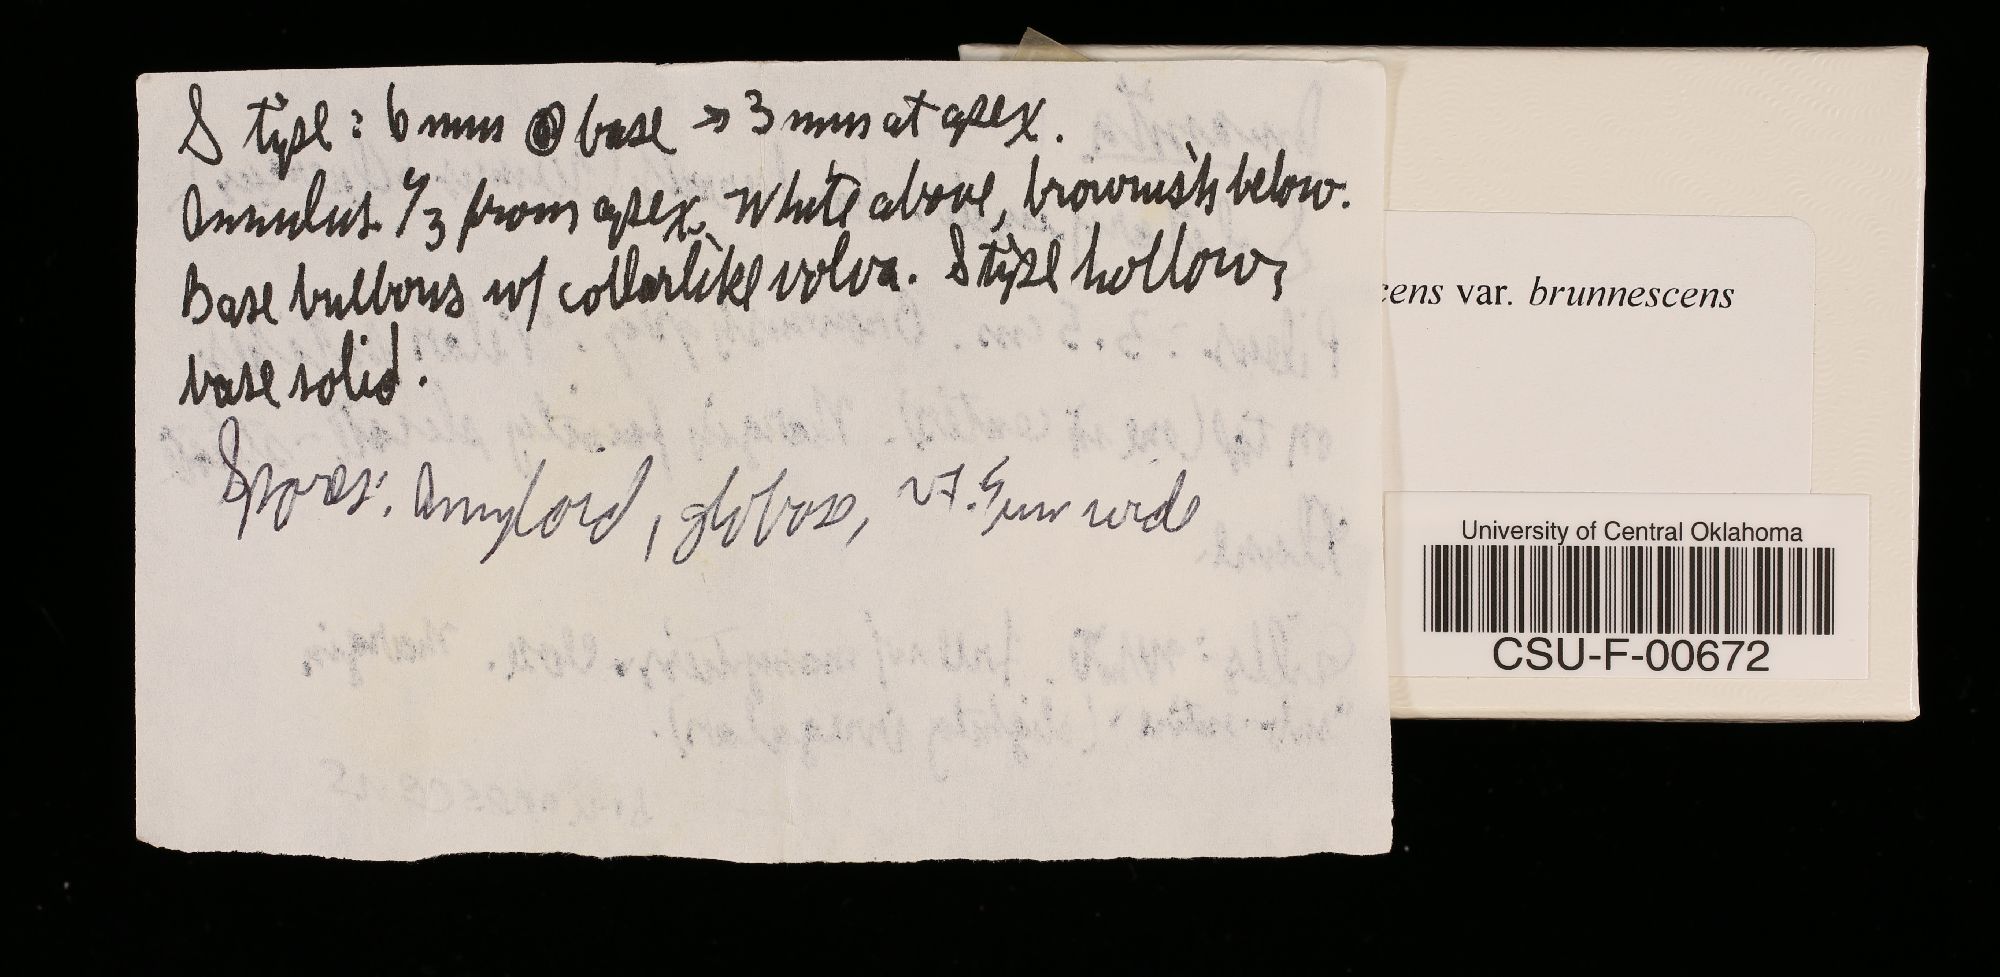 Stipe: 6 mm @ base → 3 mm at apex.
Annulus 1/3 from apex, white above, brownish below.
Base bulbous w/ collarlike volva. Stipe hollow;
base solid.
Spores: Amyloid, globose, ~7.5 µm wide
cens var. brunnescens
University of Central Oklahoma
CSU-F-00672